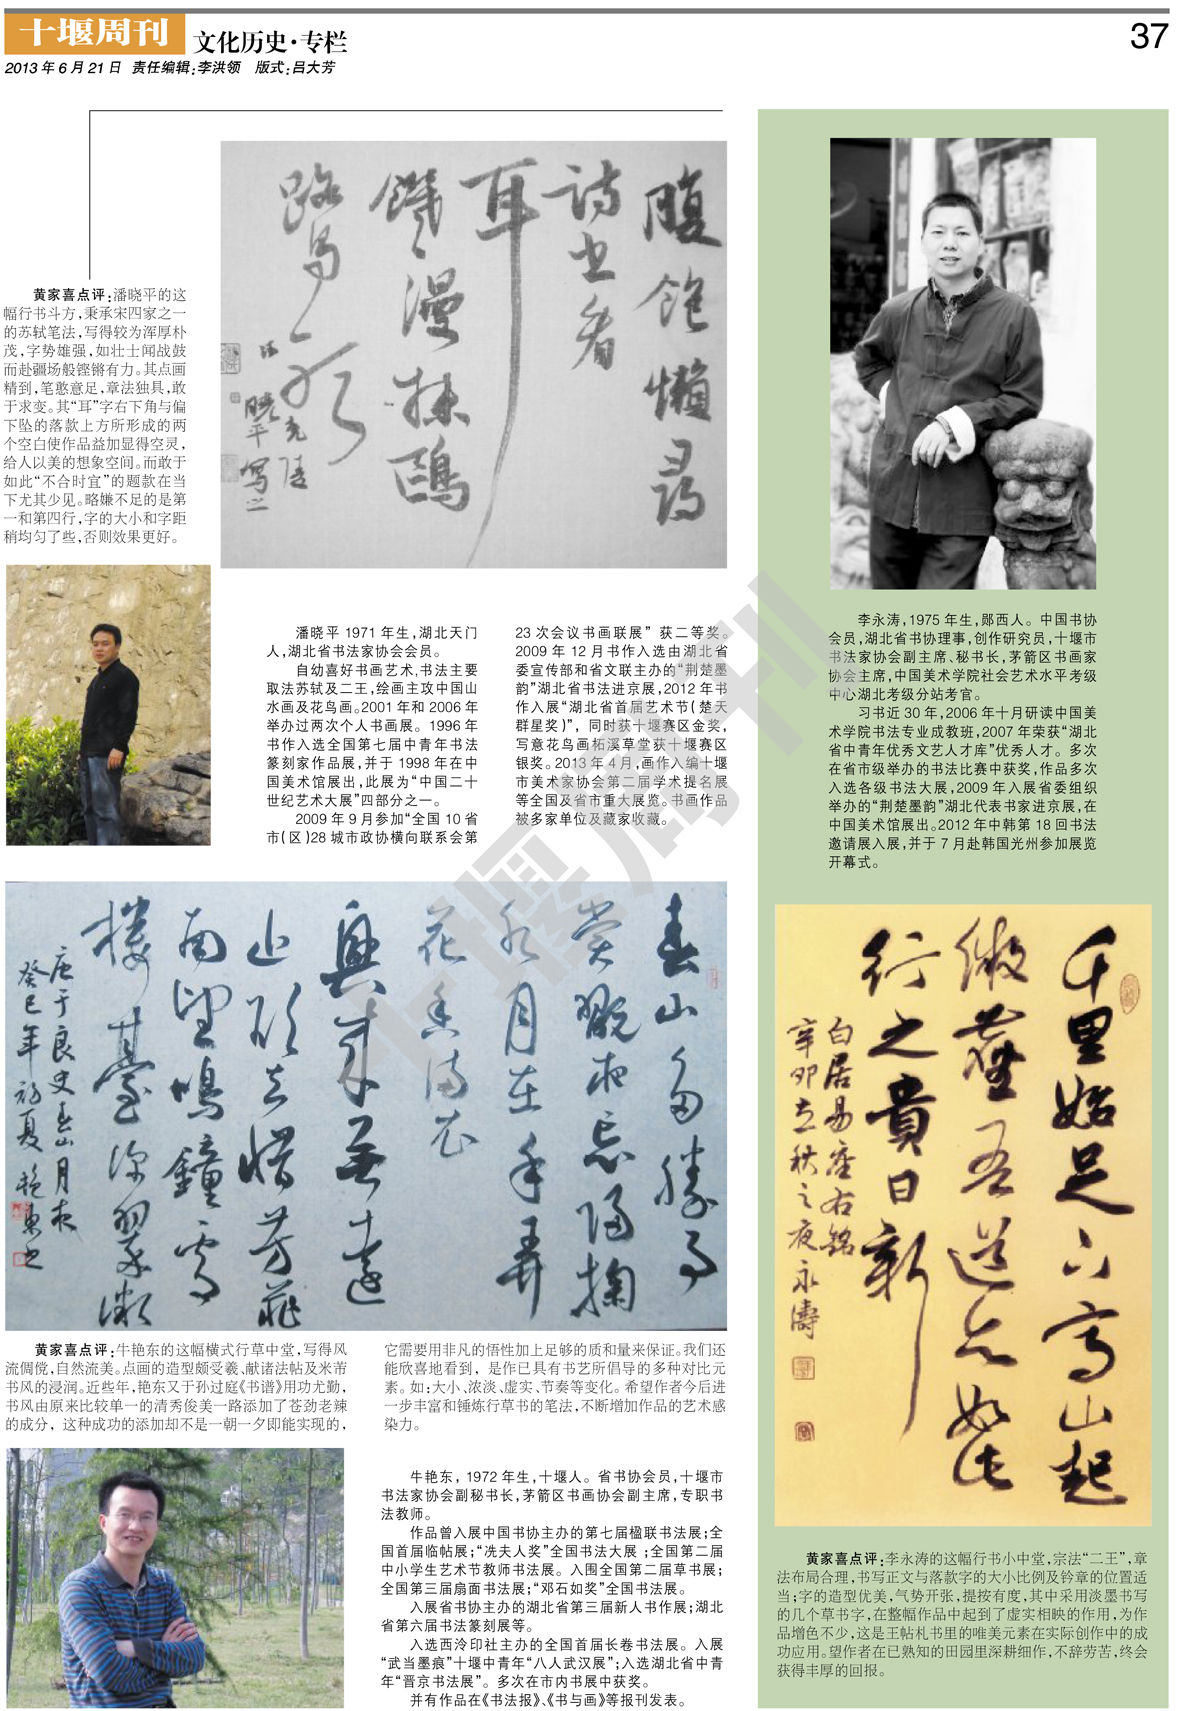 十堰周刊
文化历史·专栏
37
2013 年 6 月 21 日 责任编辑:李洪领 版式:吕大芳
腹饱懒寻
诗书看
耳
饥漫抹鸥
鹭
晓平写之
黄家喜点评:潘晓平的这
幅行书斗方,秉承宋四家之一
的苏轼笔法,写得较为浑厚朴
茂,字势雄强,如壮士闻战鼓
而赴疆场般铿锵有力。其点画
精到,笔憨意足,章法独具,敢
于求变。其“耳”字右下角与偏
下坠的落款上方所形成的两
个空白使作品益加显得空灵,
给人以美的想象空间。而敢于
如此“不合时宜”的题款在当
下尤其少见。略嫌不足的是第
一和第四行,字的大小和字距
稍均匀了些,否则效果更好。
潘晓平 1971 年生,湖北天门
人,湖北省书法家协会会员。
自幼喜好书画艺术,书法主要
取法苏轼及二王,绘画主攻中国山
水画及花鸟画。2001 年和 2006 年
举办过两次个人书画展。1996 年
书作入选全国第七届中青年书法
篆刻家作品展,并于 1998 年在中
国美术馆展出,此展为“中国二十
世纪艺术大展”四部分之一。
2009 年 9 月参加“全国 10 省
市(区)28 城市政协横向联系会第
23 次会议书画联展”获二等奖。
2009 年 12 月书作入选由湖北省
委宣传部和省文联主办的“荆楚墨
韵”湖北省书法进京展,2012 年书
作入展“湖北省首届艺术节(楚天
群星奖)”,同时获十堰赛区金奖,
写意花鸟画柘溪草堂获十堰赛区
银奖。2013 年 4 月,画作入编十堰
市美术家协会第二届学术提名展
等全国及省市重大展览。书画作品
被多家单位及藏家收藏。
春山多胜事
赏玩夜忘归掬
水月在手弄
花香满衣
兴来无远
近欲去惜芳菲
南望鸣钟处
楼台深翠微
唐于良史春山月夜
癸巳年初夏艳东书
黄家喜点评:牛艳东的这幅横式行草中堂,写得风
流倜傥,自然流美。点画的造型颇受羲、献诸法帖及米芾
书风的浸润。近些年,艳东又于孙过庭《书谱》用功尤勤,
书风由原来比较单一的清秀俊美一路添加了苍劲老辣
的成分，这种成功的添加却不是一朝一夕即能实现的,
它需要用非凡的悟性加上足够的质和量来保证。我们还
能欣喜地看到，是作已具有书艺所倡导的多种对比元
素。如:大小、浓淡、虚实、节奏等变化。希望作者今后进
一步丰富和锤炼行草书的笔法,不断增加作品的艺术感
染力。
牛艳东，1972 年生,十堰人。省书协会员,十堰市
书法家协会副秘书长,茅箭区书画协会副主席,专职书
法教师。
作品曾入展中国书协主办的第七届楹联书法展;全
国首届临帖展;“冼夫人奖”全国书法大展 ;全国第二届
中小学生艺术节教师书法展。入围全国第二届草书展;
全国第三届扇面书法展;“邓石如奖”全国书法展。
入展省书协主办的湖北省第三届新人书作展;湖北
省第六届书法篆刻展等。
入选西泠印社主办的全国首届长卷书法展。入展
“武当墨痕”十堰中青年“八人武汉展”;入选湖北省中青
年“晋京书法展”。多次在市内书展中获奖。
并有作品在《书法报》、《书与画》等报刊发表。
李永涛,1975 年生,郧西人。中国书协
会员,湖北省书协理事,创作研究员,十堰市
书法家协会副主席、秘书长,茅箭区书画家
协会主席,中国美术学院社会艺术水平考级
中心湖北考级分站考官。
习书近 30 年,2006 年十月研读中国美
术学院书法专业成教班,2007 年荣获“湖北
省中青年优秀文艺人才库”优秀人才。多次
在省市级举办的书法比赛中获奖,作品多次
入选各级书法大展,2009 年入展省委组织
举办的“荆楚墨韵”湖北代表书家进京展,在
中国美术馆展出。2012 年中韩第 18 回书法
邀请展入展,并于 7 月赴韩国光州参加展览
开幕式。
千里始足下高山起
微尘吾道亦如此
行之贵日新
白居易座右铭
辛卯立秋之夜永涛
黄家喜点评:李永涛的这幅行书小中堂,宗法“二王”,章
法布局合理,书写正文与落款字的大小比例及钤章的位置适
当;字的造型优美,气势开张,提按有度,其中采用淡墨书写
的几个草书字,在整幅作品中起到了虚实相映的作用,为作
品增色不少,这是王帖札书里的唯美元素在实际创作中的成
功应用。望作者在已熟知的田园里深耕细作,不辞劳苦,终会
获得丰厚的回报。
十堰周刊